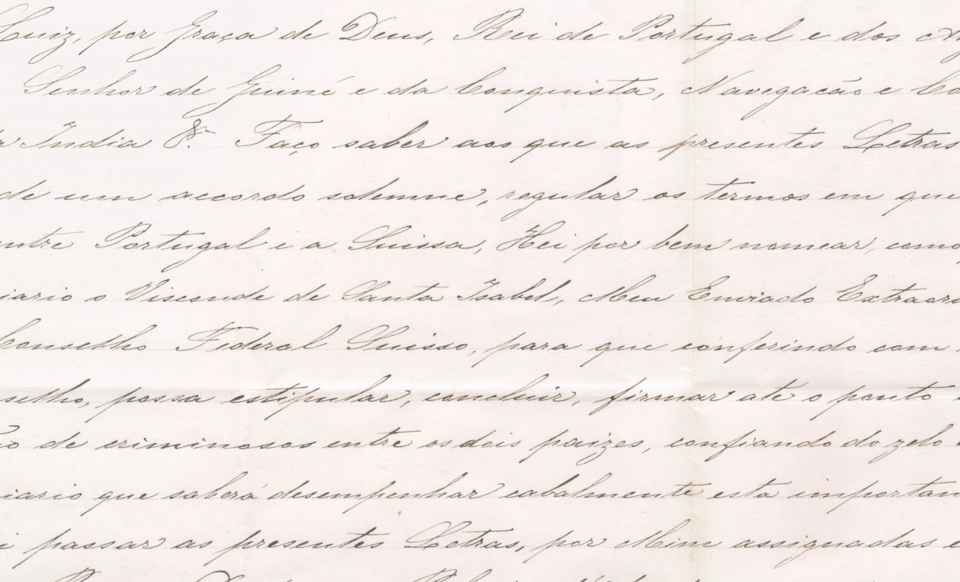 Luiz, por Graça de Deus, Rei de Portugal e dos
Senhor de Guiné e da Conquista, Navegacão e Co
India &ª. Faço saber aos que as presentes Letras
de um accordo solemne, regular os termos em que
entre Portugal e a Suissa, Hei por bem nomear, como
iario o Visconde de Santa Isabel, Meu Enviado Extraor
Conselho Federal Suisso, para que conferindo com
selho, possa estipular, concluir, firmar até o ponto
ão de criminosos entre os dois paizes, confiando do zelo
iario que saberá desempenhar cabalmente esta importan
i passar as presentes Letras, por Mim assignadas e